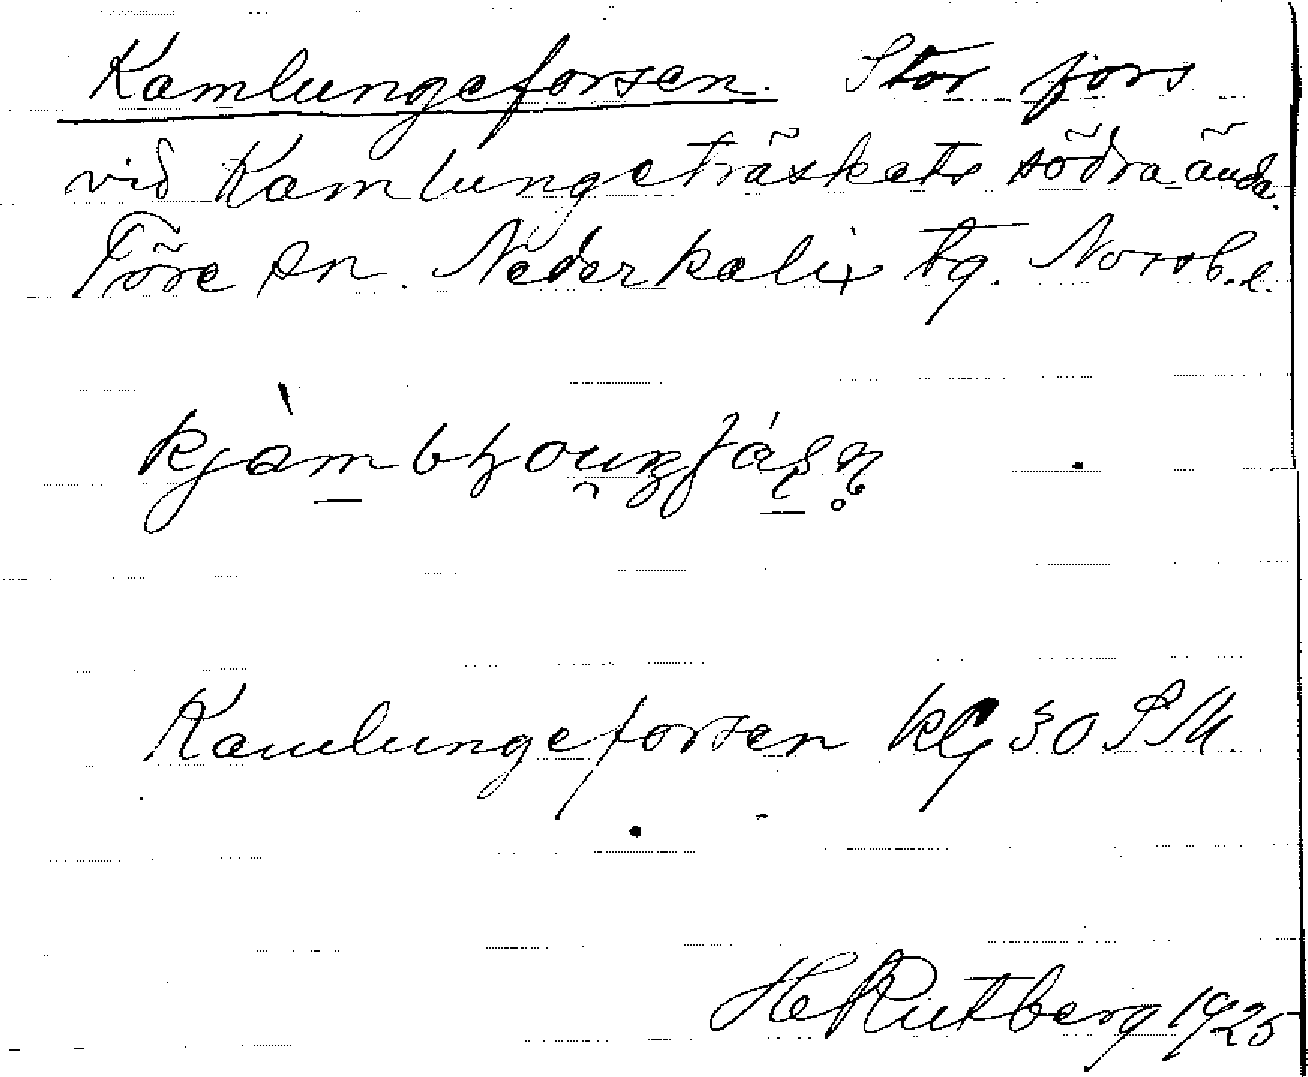 Kamlungeforsen. Stor fors
vid Kamlungeträskets södra ända.
Töre sn. Nederkalix tg. Norrb. l.
Kamlungeforsen kbl 30 SM
H Rutberg 1925